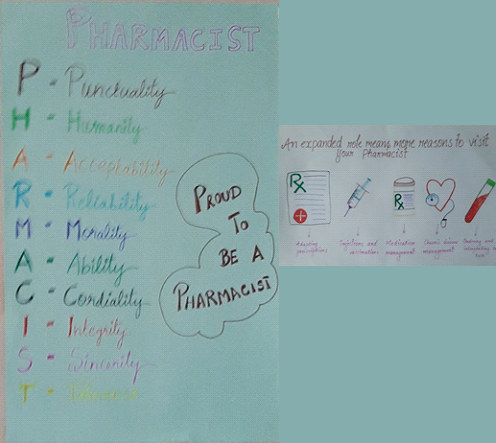 PHARMACIST
P - Punctuality
H - Humanity
A - Acceptability
R - Reliability
M - Morality
A - Ability
C - Cordiality
I - Integrity
S - Sincerity
T -
PROUD
TO
BE A
PHARMACIST
An expanded role means more reasons to visit
your Pharmacist
Rx
Rx
prescriptions
Injections and
vaccinations
Medication
management
Chronic disease
management
Ordering and
interpreting lab
tests